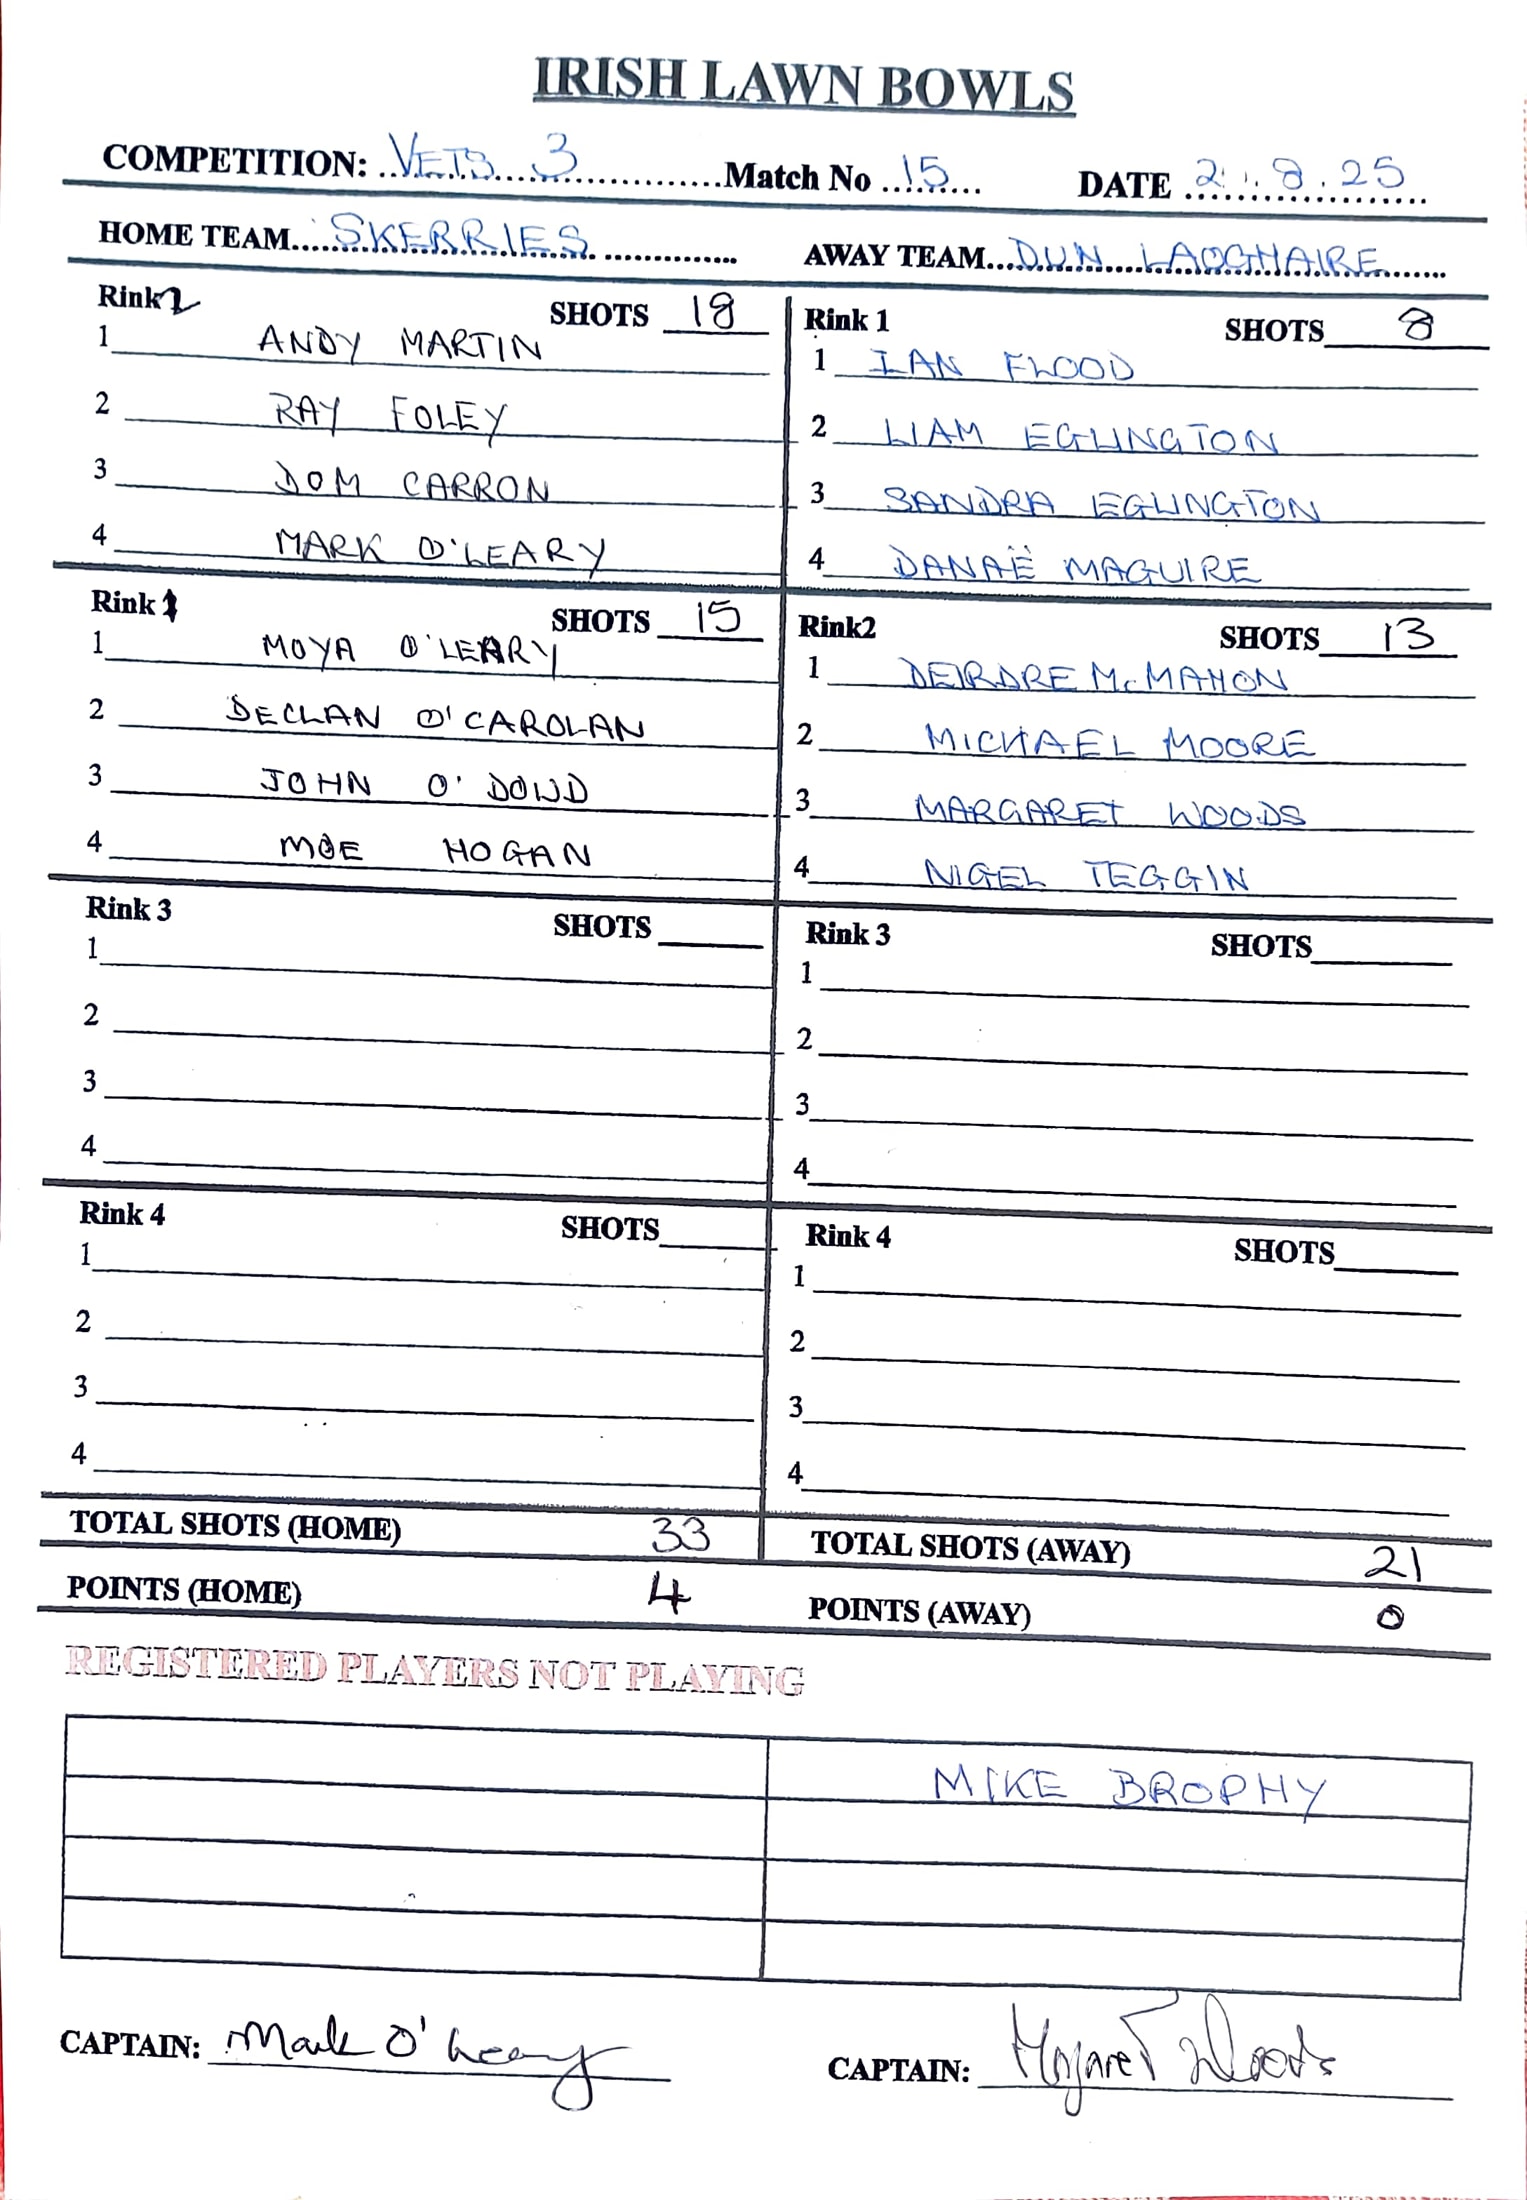 IRISH LAWN BOWLS
COMPETITION: VETS 3 Match No 15 DATE 2.8.25
HOME TEAM SKERRIES AWAY TEAM DUN LAOGHAIRE
Rink 2 SHOTS 18
1 ANDY MARTIN
2 RAY FOLEY
3 DOM CARRON
4 MARK O'LEARY
Rink 1 SHOTS 8
1 IAN FLOOD
2 LIAM EGLINGTON
3 SANDRA EGLINGTON
4 DANAË MAGUIRE
Rink 1 SHOTS 15
1 MOYA O'LEARY
2 DECLAN O'CAROLAN
3 JOHN O'DOWD
4 MOE HOGAN
Rink2 SHOTS 13
1 DEIRDRE McMAHON
2 MICHAEL MOORE
3 MARGARET WOODS
4 NIGEL TEGGIN
Rink 3 SHOTS
1
2
3
4
Rink 3 SHOTS
1
2
3
4
Rink 4 SHOTS
1
2
3
4
Rink 4 SHOTS
1
2
3
4
TOTAL SHOTS (HOME) 33 TOTAL SHOTS (AWAY) 21
POINTS (HOME) 4 POINTS (AWAY) 0
REGISTERED PLAYERS NOT PLAYING
MIKE BROPHY
CAPTAIN: Mark O'Leary CAPTAIN: Margaret Woods